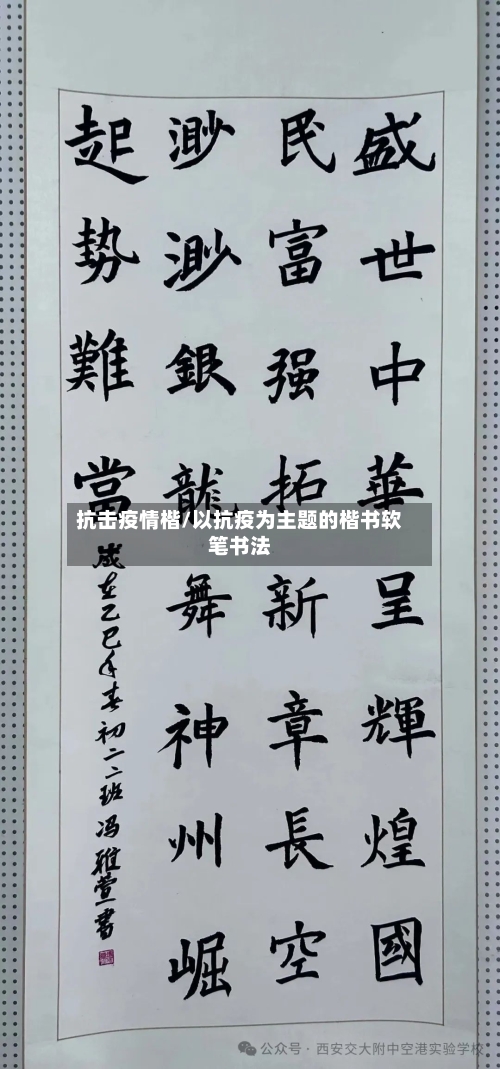 盛世中華呈輝煌國
民富强拓新章長空
渺渺銀龍舞神州崛
起勢難當
歲在乙巳年春初二二班冯雅萱書
抗击疫情楷/以抗疫为主题的楷书软
笔书法
公众号 · 西安交大附中空港实验学校